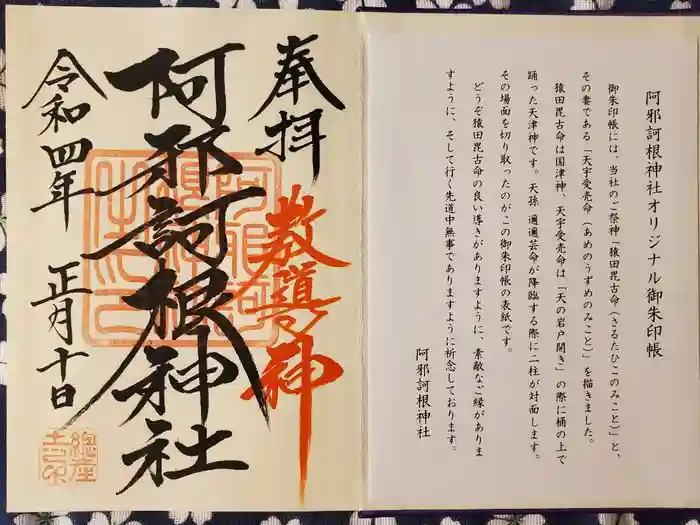 阿邪訶根神社オリジナル御朱印帳
御朱印帳には、当社のご祭神「猿田毘古命(さるたひこのみこと)」と、
その妻である「天宇受売命(あめのうずめのみこと)」を描きました。
猿田毘古命は国津神、天宇受売命は「天の岩戸開き」の際に桶の上で
踊った天津神です。天孫 邇邇芸命が降臨する際に二柱が対面します。
その場面を切り取ったのがこの御朱印帳の表紙です。
どうぞ猿田毘古命の良い導きがありますように、素敵なご縁がありま
すように、そして行く先道中無事でありますように祈念しております。
阿邪訶根神社
奉拝
教導神
阿邪訶根神社
令和四年 正月十日